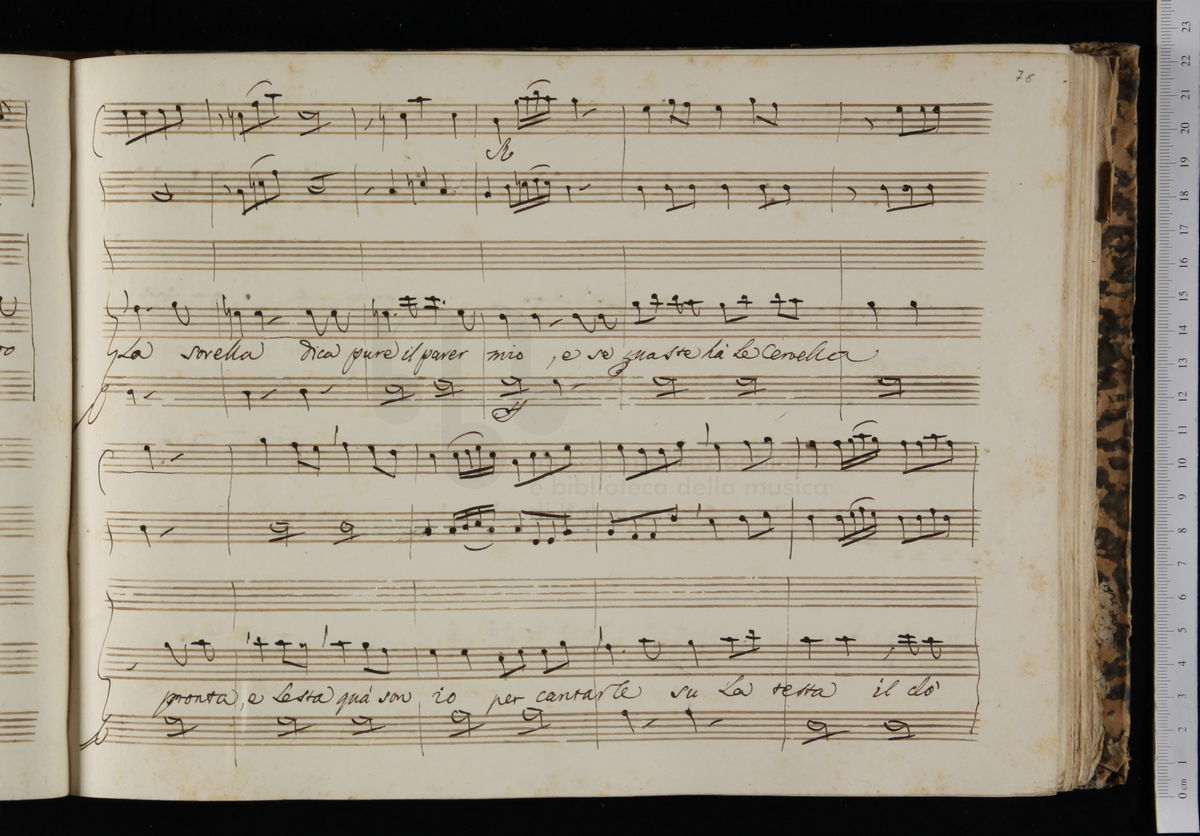 76
La sorella dica pure il parer mio, e se guaste là le cervella
pronta, e lesta quà son io per cantarle su la testa il clò
e biblioteca della musica
23
22
21
20
19
18
17
16
15
14
13
12
11
10
9
8
7
6
5
4
3
2
1
0 cm